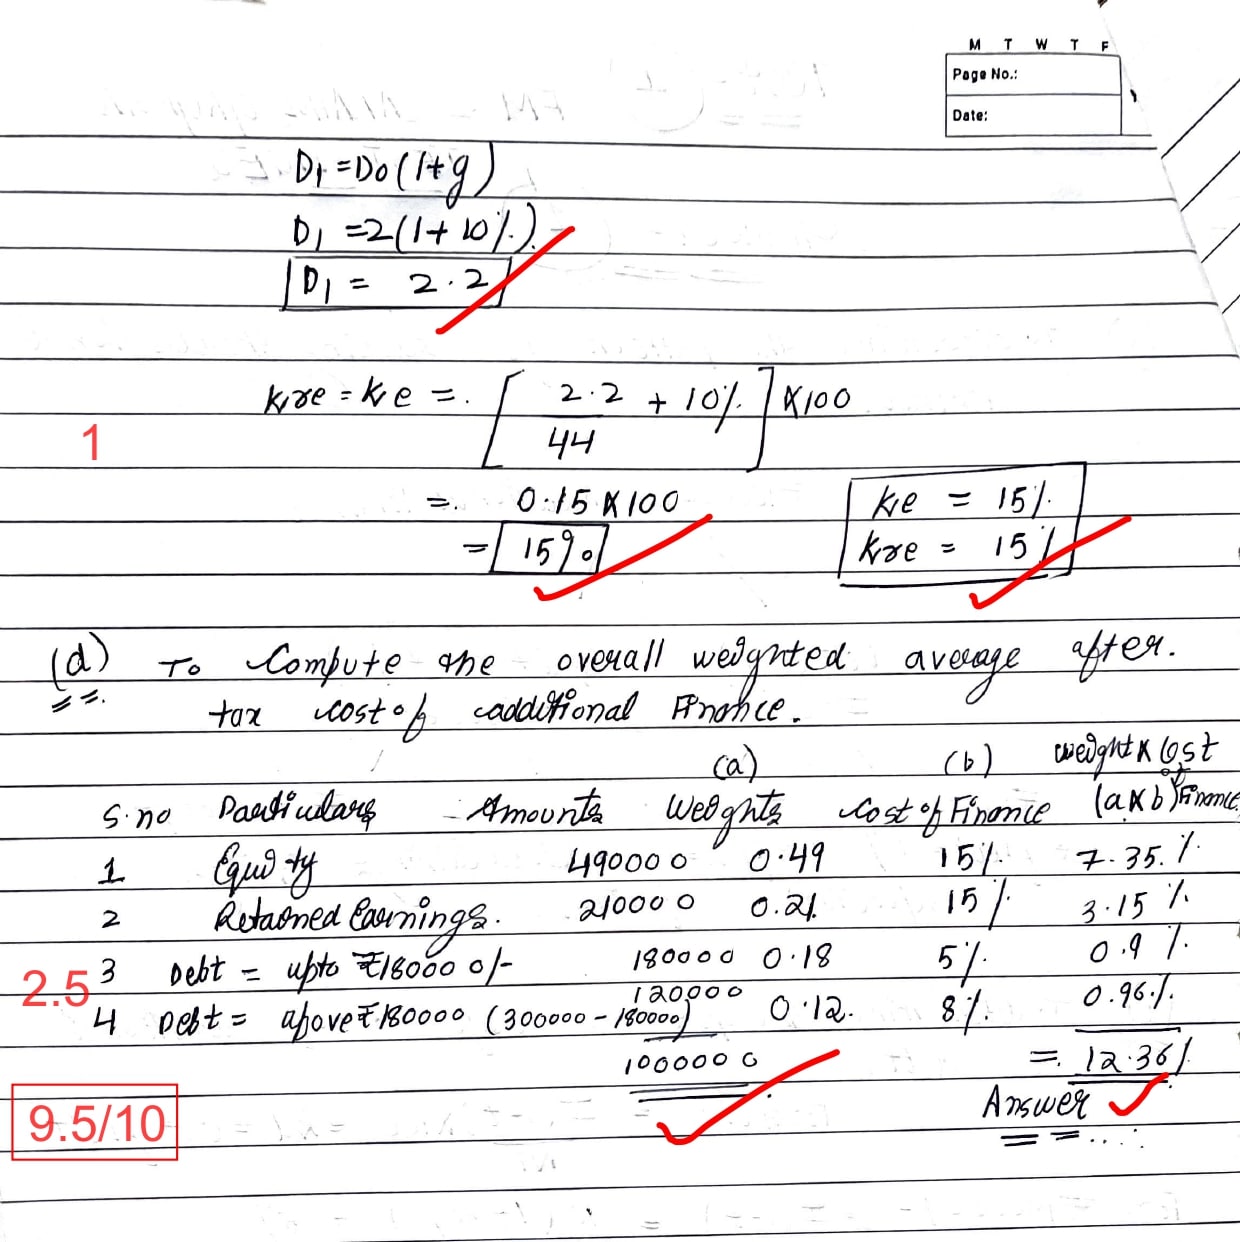 M T W T F
Page No.:
Date:
D1 = D0 (1+g)
D1 = 2(1+10%)
D1 = 2.2
Kre = Ke = [2.2/44 + 10%] x100
1
= 0.15 x 100
= 15%
Ke = 15%
Kre = 15%
(d) To Compute the overall weighted average after.
tax cost of additional Finance.
(a) (b) weight x Cost of Finance
S.no Particulars Amounts Weights Cost of Finance (axb)
1 Equity 490000 0.49 15% 7.35%
2 Retained Earnings. 210000 0.21 15% 3.15%
3 Debt = upto ₹180000/- 180000 0.18 5% 0.9%
2.5
4 Debt = above ₹180000 (300000-180000) 120000 0.12. 8% 0.96%
1000000 = 12.36%
Answer
9.5/10